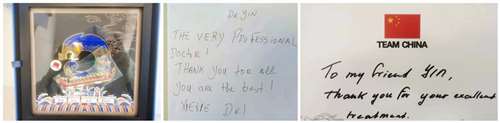 Dr Yin
THE VERY PROFESSIONAL
DOCTOR!
THANK YOU for all
you are the best!
TEAM CHINA
To my friend YIN,
Thank you for your excellent
treatment.